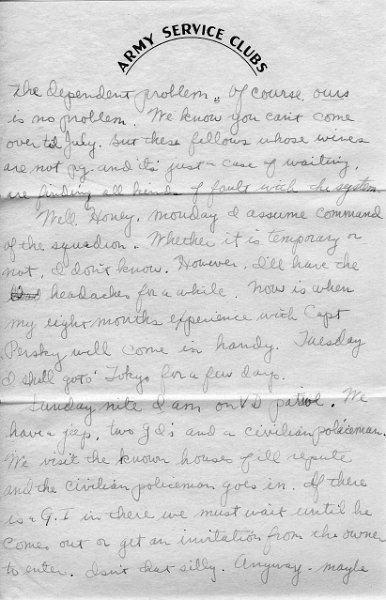 ARMY SERVICE CLUBS
The dependent problem. Of course, ours
is no problem. We know you can't come
over til July. But these fellows whose wives
are not pg. and it's just a case of waiting,
are finding all kinds of faults with the system.
Well, Honey, Monday I assume command
of the squadron. Whether it is temporary or
not, I don't know. However, I'll have the
headaches for a while. Now is when
my eight months experience with Capt
Persky will come in handy. Tuesday
I shall go to Tokyo for a few days.
Sunday nite I am on VD patrol. We
have a jeep, two GI's and a civilian policeman.
We visit the known houses of ill repute
and the civilian policeman goes in. If there
is a G.I in there we must wait until he
comes out or get an invitation from the owner
to enter. Isn't that silly. Anyway - maybe